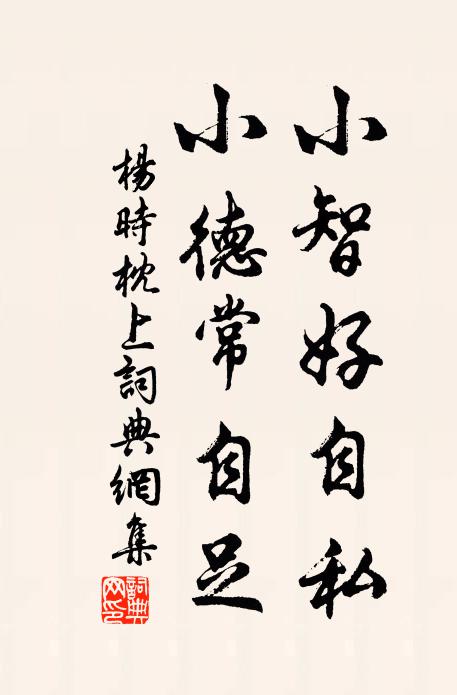 小智好自私
小德常自足
楊時枕上詞典網集
詞典网印